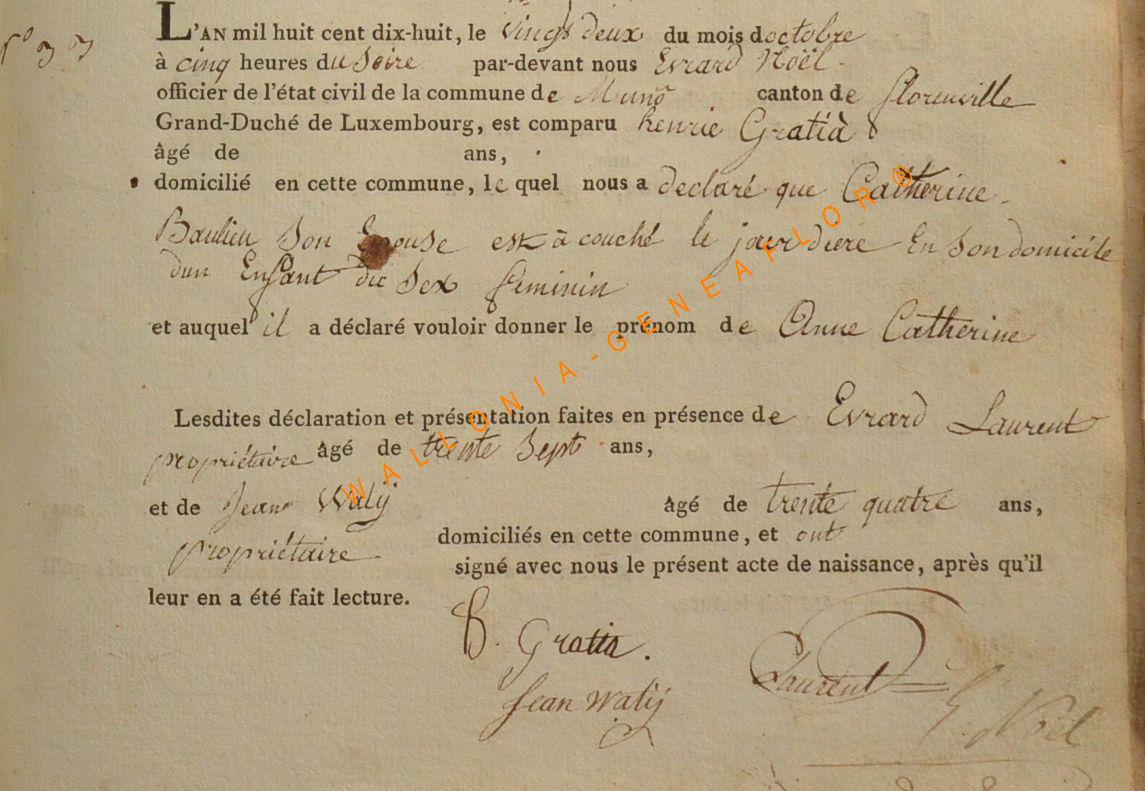 L'AN mil huit cent dix-huit, le vingt deux du mois doctobre
à cinq heures du Soire par-devant nous Evrard Noël
officier de l'état civil de la commune de Muno canton de florenville
Grand-Duché de Luxembourg, est comparu henrie Gratia
âgé de ans,
domicilié en cette commune, le quel nous a declaré que Catherine
Baulieu Son Epouse est à couché le jour diere En Son domicile
dun Enfant du Sex feminin
et auquel il a déclaré vouloir donner le prénom de Anne Catherine
Lesdites déclaration et présentation faites en présence de Evrard Laurent
propriétaire âgé de trente Sept ans,
et de Jean Walij âgé de trente quatre ans,
propriétaire domiciliés en cette commune, et ont
signé avec nous le présent acte de naissance, après qu'il
leur en a été fait lecture.
Gratia.
Laurent
Jean walij
E. Noël
WALLONIA-GENEAFLOR@